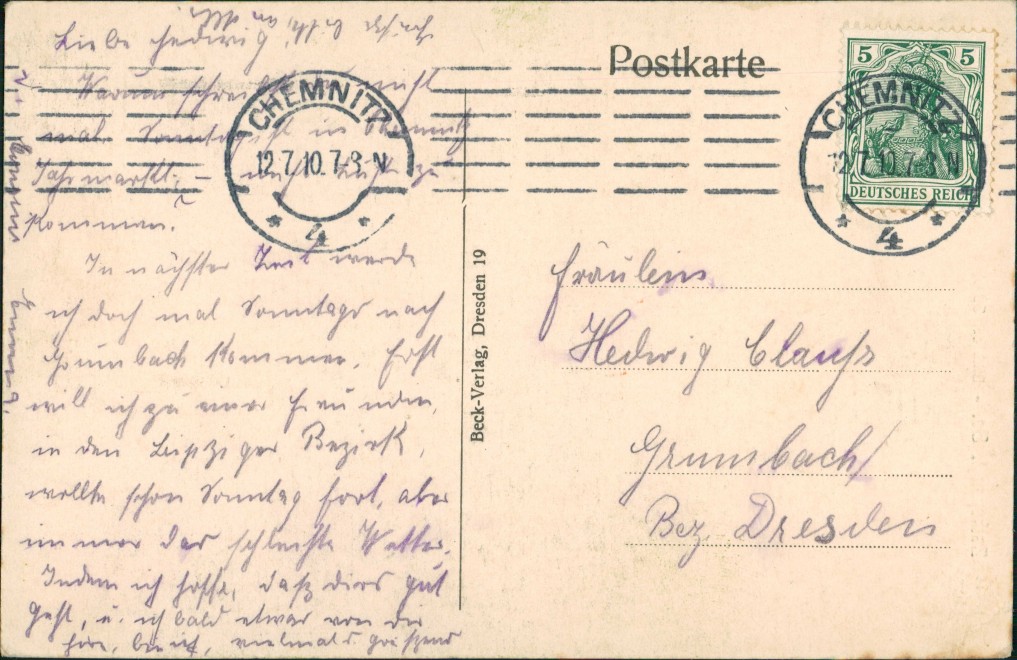 Liebe Hedwig!
Warum schreibst nicht
mal. Sonntag ist in Chemnitz
Jahrmarkt. – zu
kommen?
In nächster Zeit werde
ich doch mal Sonntags nach
Grumbach kommen. Erst
will ich zu einer Freundin,
in den Leipziger Bezirk,
wollte schon Sonntag fort, aber
immer das schlechte Wetter.
Indem ich hoffe, daß dirs gut
geht, u. ich bald etwas von dir
höre, bin ich, vielmals grüßend
Postkarte
5 5
DEUTSCHES REICH
CHEMNITZ
12.7.10.7-8 N
* 4 *
CHEMNITZ
12.7.10.7-8 N
* 4 *
Beck-Verlag, Dresden 19
Fräulein
Hedwig Clauß
Grumbach
Bez. Dresden